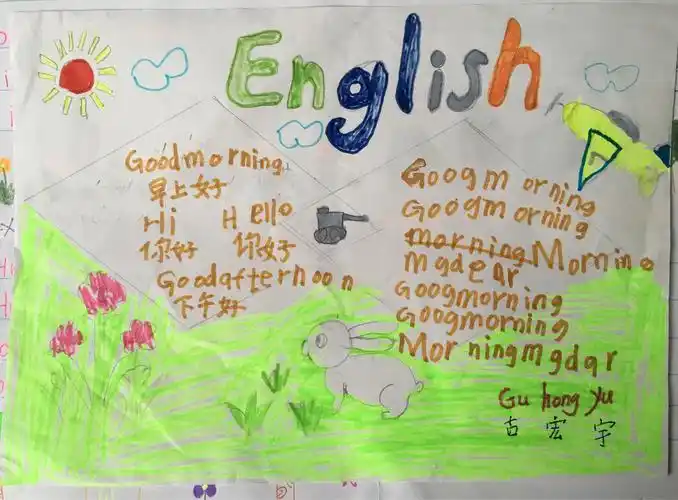 English
Goodmorning
早上好
Hi Hello
你好 你好
Goodafternoon
下午好
Googmorning
Googmorning
morning Morning
mgdear
Googmorning
Googmorning
Morningmgdar
Gu hong yu
古宏宇